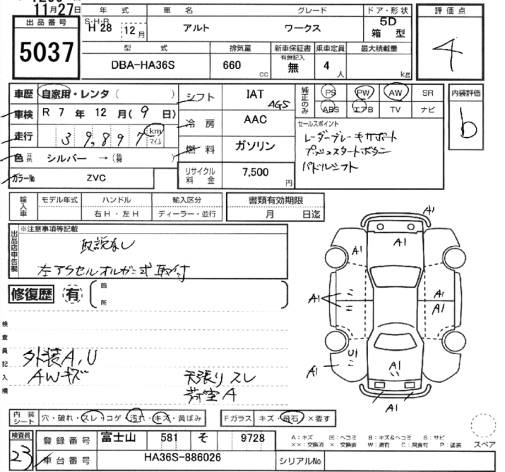 11月27日
出品番号
5037
S・H・R
年式
H28年12月
車名
アルト
グレード
ワークス
ドア・形状
5D
箱型
評価点
4
型式
DBA-HA36S
排気量
660cc
新車保証書
有 無
乗車定員
4人
最大積載量
kg
車歴 自家用・レンタ( )
シフト IAT AGS
純正のみ PS PW AW SR
ABS エアB TV ナビ
内装評価
b
車検 R 7年12月(9日)
冷房 AAC
セールスポイント
レーダーブレーキサポート
プッシュスタートボタン
パドルシフト
走行 39,897 km マイル
燃料 ガソリン
色 シルバー →( )
リサイクル料金 7,500円
カラーNo ZVC
輸入車
モデル年式
ハンドル
右H・左H
輸入区分
ディーラー・並行
書類有効期限
月 日迄
出品店申告欄
※注意事項等記載
取説なし
左アクセルオルガン式取付
修復歴 有 箇所
検査員記入欄
外装A,U
AWキズ
天張りスレ
荷室A
A1
A1
A1
A1
A1
A1
A1
A1
U1
A1
A1
A1
内装シート
穴・破れ・スレ・コゲ・汚れ・キズ・黄ばみ
Fガラス キズ・飛石・×要す
スペア
検査員
23
登録番号 富士山 581 そ 9728
車台番号 HA36S-886026
シリアルNo